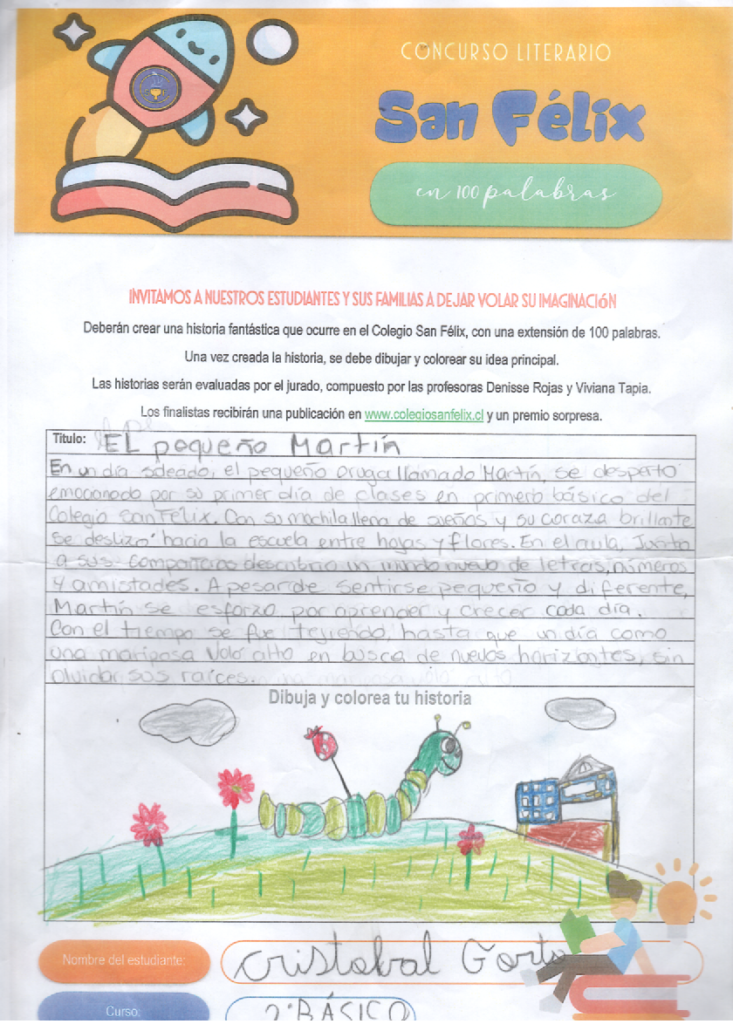 CONCURSO LITERARIO
San Félix
en 100 palabras
INVITAMOS A NUESTROS ESTUDIANTES Y SUS FAMILIAS A DEJAR VOLAR SU IMAGINACIÓN
Deberán crear una historia fantástica que ocurre en el Colegio San Félix, con una extensión de 100 palabras.
Una vez creada la historia, se debe dibujar y colorear su idea principal.
Las historias serán evaluadas por el jurado, compuesto por las profesoras Denisse Rojas y Viviana Tapia.
Los finalistas recibirán una publicación en www.colegiosanfelix.cl y un premio sorpresa.
Título: EL pequeño Martín
En un día soleado, el pequeño oruga llamado Martín, se despertó
emocionado por su primer día de clases en primero básico del
Colegio San Felix. Con su mochila llena de sueños y su coraza brillante
se deslizó hacia la escuela entre hojas y flores. En el aula, Junto
a sus compañeros descubria un mundo nuevo de letras, números
y amistades. A pesar de sentirse pequeño y diferente,
Martín se esforzo por aprender y crecer cada día.
Con el tiempo se fue tejiendo, hasta que un día como
una mariposa voló alto en busca de nuevos horizontes, sin
olvidar sus raíces.
Dibuja y colorea tu historia
Nombre del estudiante: Cristobal
Curso: 2° BÁSICO